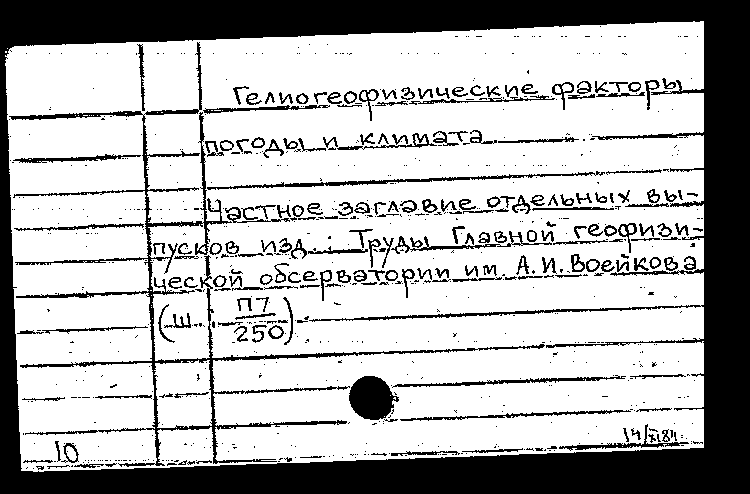 Гелиогеофизические факторы
погоды и климата
Частное заглавие отдельных вы-
пусков изд.: Труды Главной геофизи-
ческой обсерватории им. А.И. Воейкова
(Ш : П7/250).
10
14/XI84.